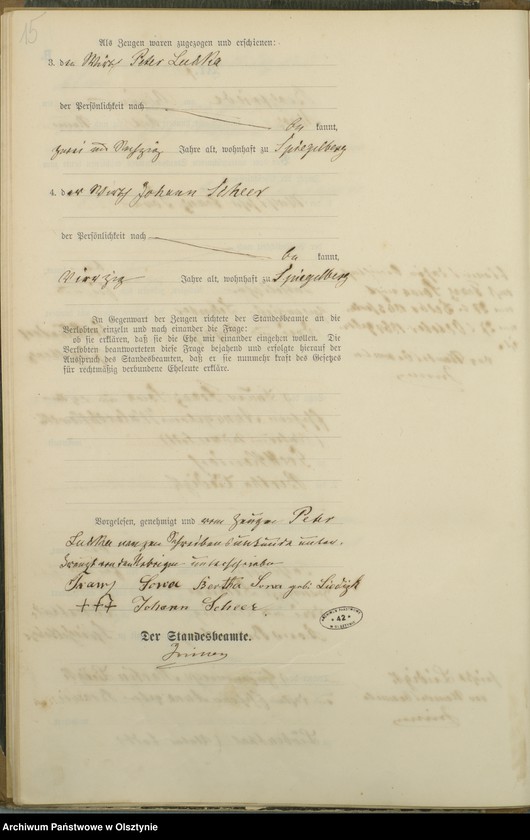 15
Als Zeugen waren zugezogen und erschienen:
3. der Wirth Peter Lubka
der Persönlichkeit nach
be kannt,
zwei und Sechzig Jahre alt, wohnhaft zu Spiegelberg
4. der Wirth Johann Scheer
der Persönlichkeit nach
be kannt,
vierzig Jahre alt, wohnhaft zu Spiegelberg
In Gegenwart der Zeugen richtete der Standesbeamte an die
Verlobten einzeln und nach einander die Frage:
ob sie erklären, daß sie die Ehe mit einander eingehen wollen. Die
Verlobten beantworteten diese Frage bejahend und erfolgte hierauf der
Ausspruch des Standesbeamten, daß er sie nunmehr kraft des Gesetzes
für rechtmäßig verbundene Eheleute erkläre.
Vorgelesen, genehmigt und vom Zeugen Peter
Lubka wegen Schreibensunkunde unter-
kreuzt von den Uebrigen unterschrieben
Franz Bertha geb: Liedigk
+++ Johann Scheer
42
Der Standesbeamte.
Archiwum Państwowe w Olsztynie